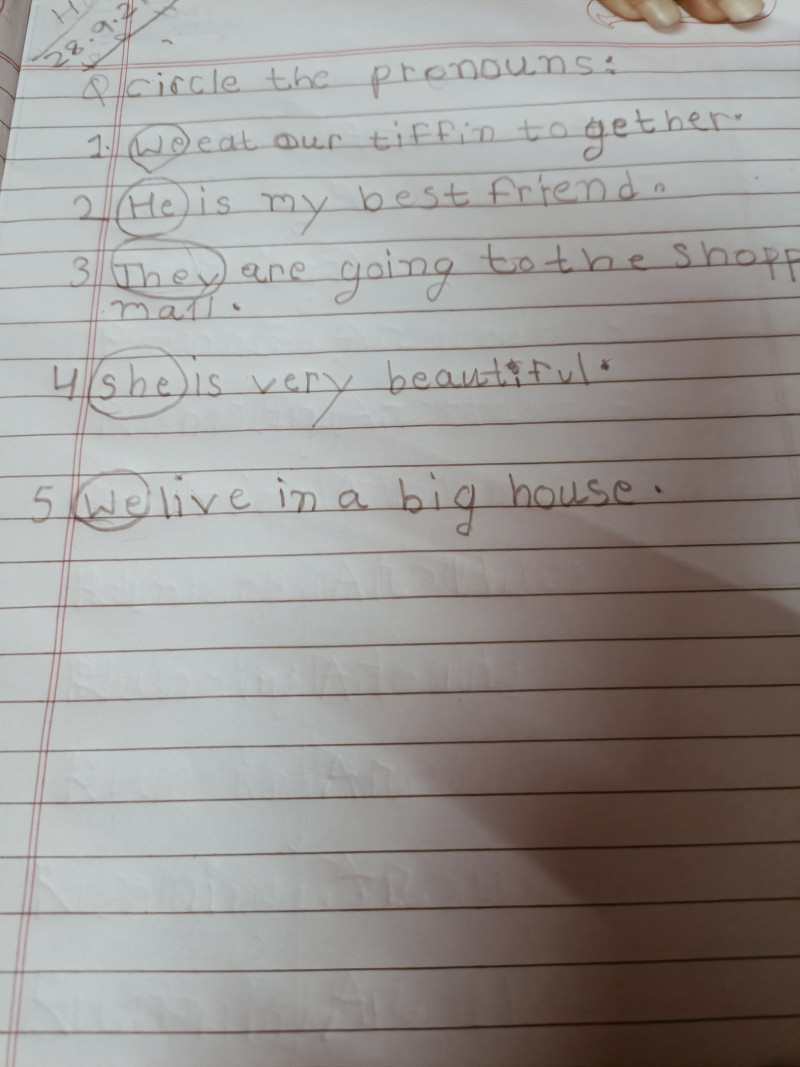 28.9.2
Q circle the pronouns:
1. We eat our tiffin together.
2 He is my best friend.
3 They are going to the shopp
mall.
4 she is very beautiful.
5 We live in a big house.